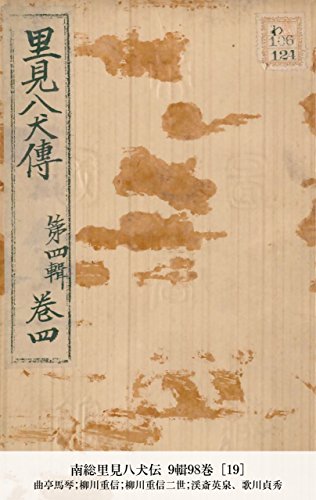 里見八犬傳 第四輯 巻四
わ
106
124
南総里見八犬伝 9輯98巻 [19]
曲亭馬琴;柳川重信;柳川重信二世;渓斎英泉、歌川貞秀